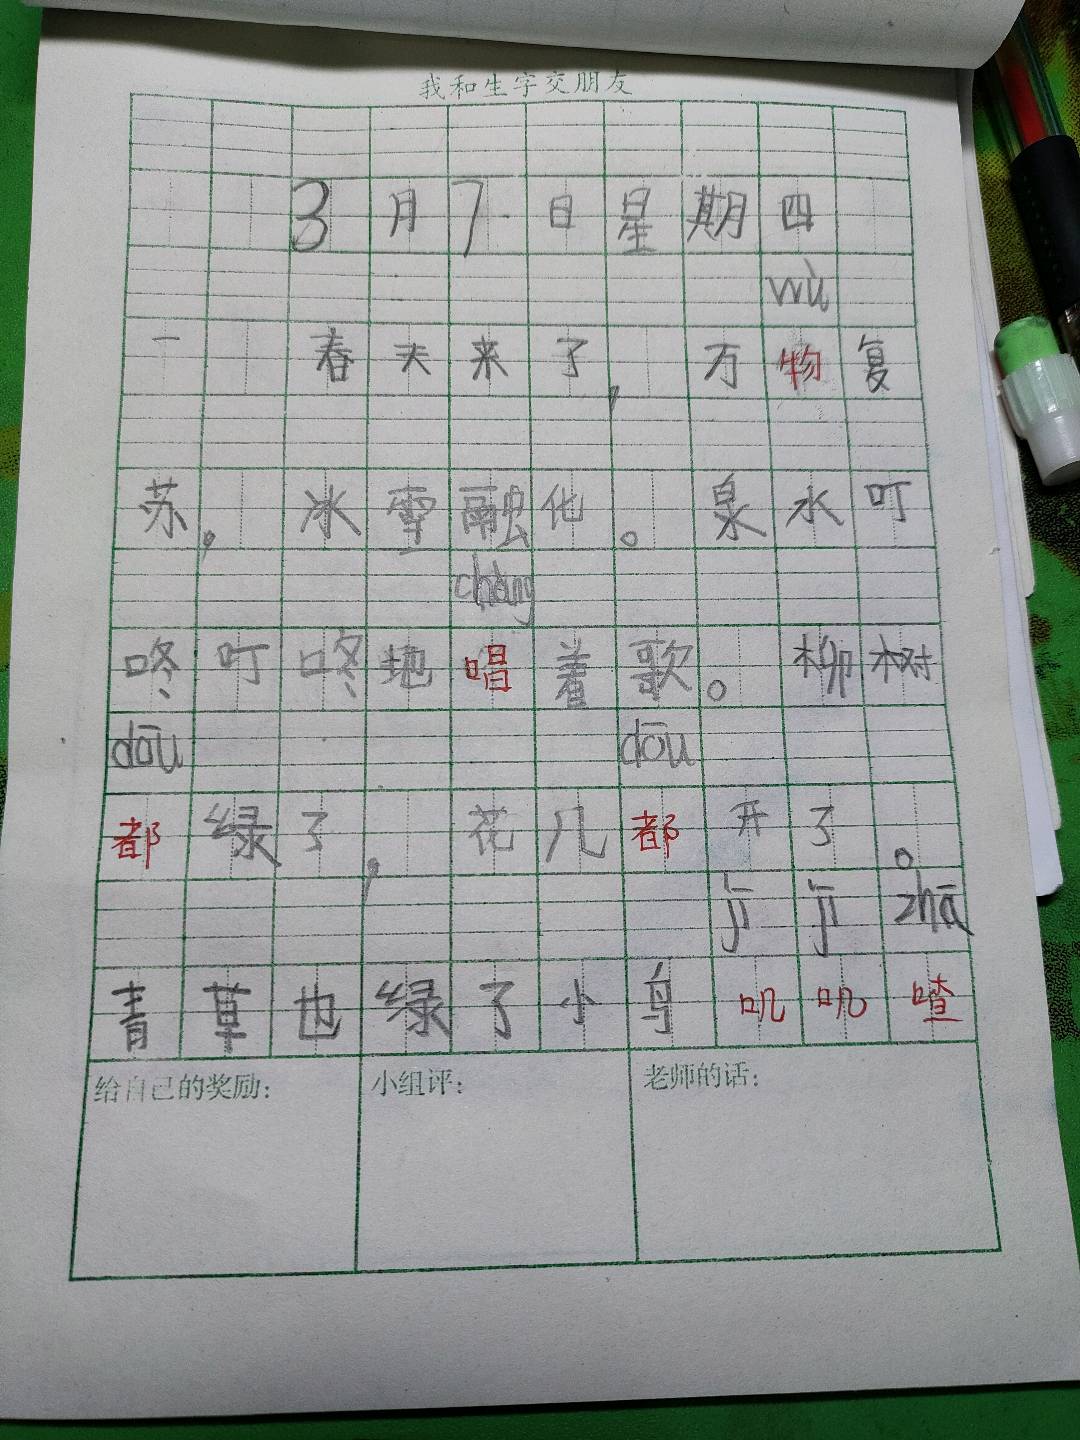 我和生字交朋友
3月7日星期四
wù
一 春天来了，万物复
苏，冰雪融化。泉水叮
chàng
咚叮咚地唱着歌。柳树
dōu dōu
都绿了，花儿都开了。
jī jī zhā
青草也绿了小鸟叽叽喳
给自己的奖励： 小组评： 老师的话：